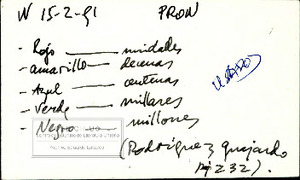 W 15-2-91 PRON
- Rojo —— unidades
- amarillo —— decenas
- Azul —— centenas
- Verde —— millares
- Negro —— millones
USADO
(Rodríguez Guajardo
pg 232).